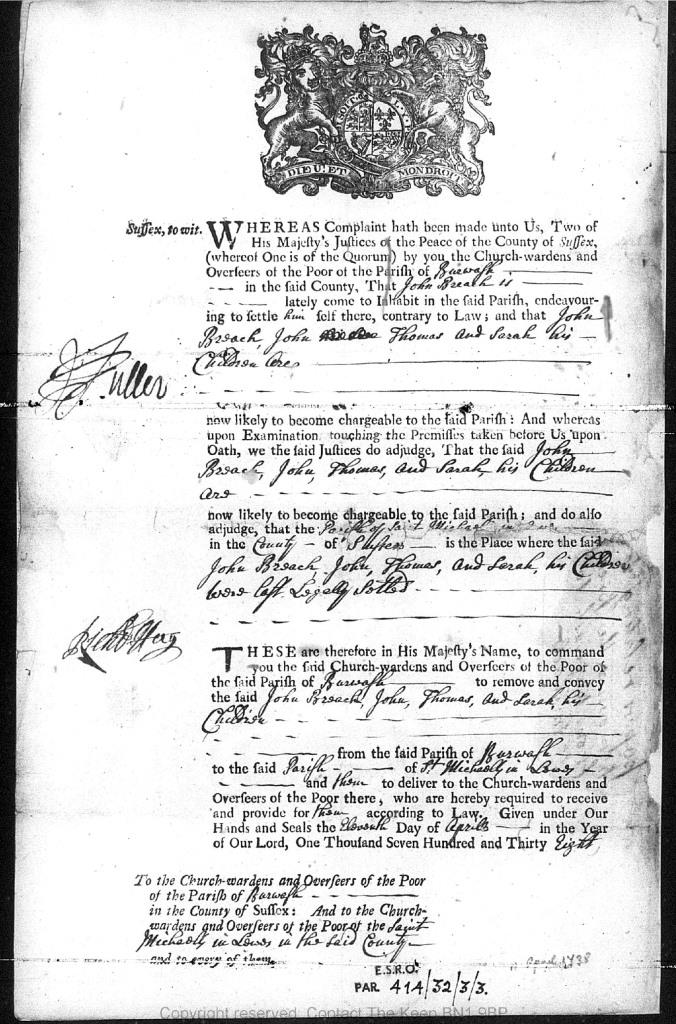 HONI SOIT
DIEU ET MON DROIT
Sussex, to wit. WHEREAS Complaint hath been made unto Us, Two of
His Majesty's Justices of the Peace of the County of Sussex,
(whereof One is of the Quorum) by you the Church-wardens and
Overseers of the Poor of the Parish of Burwash
in the said County, That John Breach is
lately come to Inhabit in the said Parish, endeavour-
ing to settle him self there, contrary to Law; and that John
Breach, John Thomas and Sarah his
Children are
J Fuller
now likely to become chargeable to the said Parish: And whereas
upon Examination touching the Premisses taken before Us upon
Oath, we the said Justices do adjudge, That the said John
Breach, John, Thomas, and Sarah, his Children
are
now likely to become chargeable to the said Parish; and do also
adjudge, that the Parish of Saint Michael in Lewes
in the County of Sussex is the Place where the said
John Breach, John, Thomas, and Sarah, his Children
were last Legally Setled
THESE are therefore in His Majesty's Name, to command
you the said Church-wardens and Overseers of the Poor of
the said Parish of Burwash to remove and convey
the said John Breach, John, Thomas, and Sarah, his
Children
from the said Parish of Burwash
to the said Parish of St. Michaells in Lewes
and them to deliver to the Church-wardens and
Overseers of the Poor there, who are hereby required to receive
and provide for them according to Law. Given under Our
Hands and Seals the Eleventh Day of Aprill in the Year
of Our Lord, One Thousand Seven Hundred and Thirty Eight
To the Church-wardens and Overseers of the Poor
of the Parish of Burwash
in the County of Sussex: And to the Church-
wardens and Overseers of the Poor of the Saint
Michaells in Lewes in the said County
and to every of them.
April 1738
E.S.R.O.
PAR 414/32/3/3.
Copyright reserved. Contact The Keep BN1 9BP